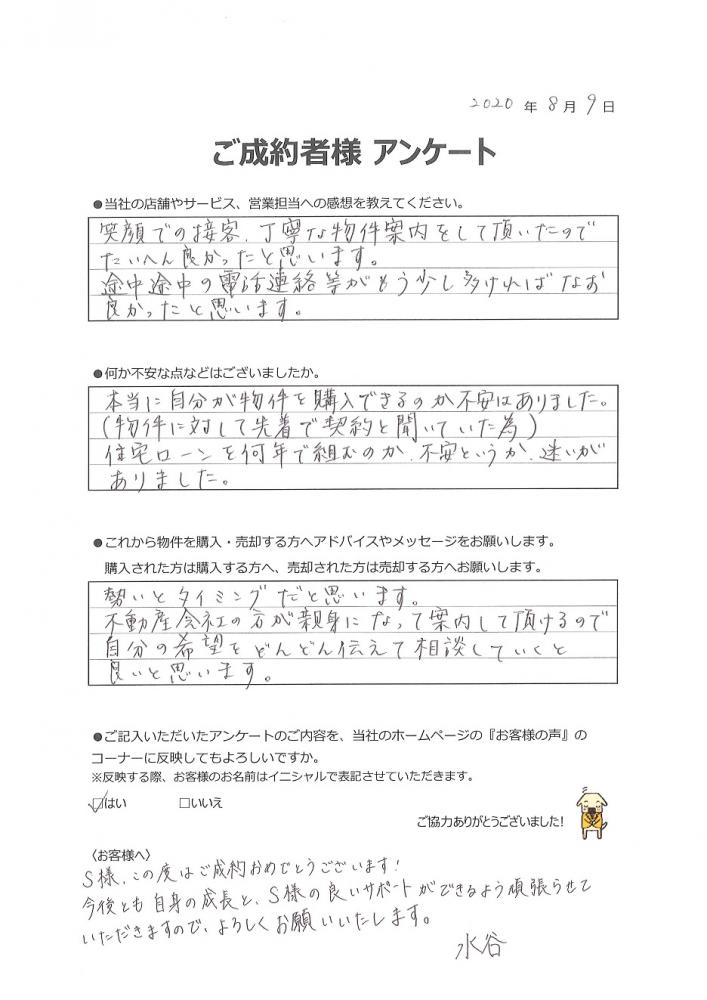 2020 年 8 月 9 日
ご成約者様 アンケート
●当社の店舗やサービス、営業担当への感想を教えてください。
笑顔での接客、丁寧な物件案内をして頂いたので
たいへん良かったと思います。
途中途中の電話連絡等がもう少し多ければなお
良かったと思います。
●何か不安な点などはございましたか。
本当に自分が物件を購入できるのか不安はありました。
(物件に対して先着で契約と聞いていた為)
住宅ローンを何年で組むのか、不安というか、迷いが
ありました。
●これから物件を購入・売却する方へアドバイスやメッセージをお願いします。
購入された方は購入する方へ、売却された方は売却する方へお願いします。
勢いとタイミングだと思います。
不動産会社の方が親身になって案内して頂けるので
自分の希望をどんどん伝えて相談していくと
良いと思います。
●ご記入いただいたアンケートのご内容を、当社のホームページの『お客様の声』の
コーナーに反映してもよろしいですか。
※反映する際、お客様のお名前はイニシャルで表記させていただきます。
☑はい □いいえ
ご協力ありがとうございました!
〈お客様へ〉
S様、この度はご成約おめでとうございます!
今後とも自身の成長と、S様の良いサポートができるよう頑張らせて
いただきますので、よろしくお願いいたします。
水谷